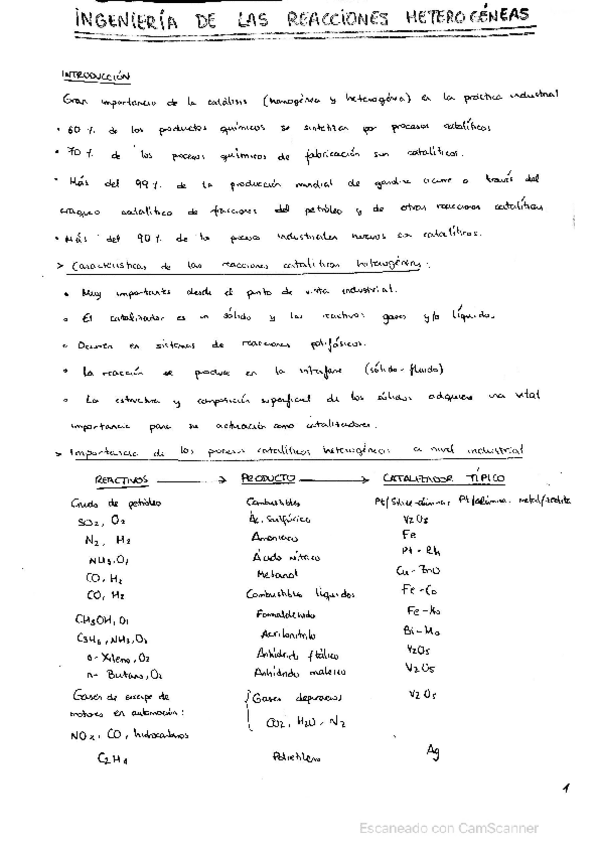 INGENIERÍA DE LAS REACCIONES HETEROGÉNEAS
INTRODUCCIÓN
Gran importancia de la catálisis (homogénea y heterogénea) en la práctica industrial
• 60 % de los productos químicos se sintetizan por procesos catalíticos
• 70 % de los procesos químicos de fabricación son catalíticos.
• Más del 99 % de la producción mundial de gasolina ocurre a través del
craqueo catalítico de fracciones del petróleo y de otras reacciones catalíticas
• Más del 90 % de los procesos industriales nuevos son catalíticos.
> Características de las reacciones catalíticas heterogéneas:
• Muy importantes desde el punto de vista industrial.
• El catalizador es un sólido y los reactivos gases y/o líquidos.
• Ocurren en sistemas de reacciones polifásicos.
• La reacción se produce en la interfase (sólido-fluido)
• La estructura y composición superficial de los sólidos adquiere una vital
importancia para su actuación como catalizadores.
> Importancia de los procesos catalíticos heterogéneos a nivel industrial
REACTIVOS → PRODUCTO → CATALIZADOR TÍPICO
Crudo de petróleo Combustibles Pt/Sílice-alúmina, Pt/alúmina, metal/zeolita
SO2, O2 Ác. Sulfúrico V2O5
N2, H2 Amoniaco Fe
NH3, O2 Ácido nítrico Pt-Rh
CO, H2 Metanol Cu-ZnO
CO, H2 Combustibles líquidos Fe-Co
CH3OH, O2 Formaldehido Fe-Mo
C3H6, NH3, O2 Acrilonitrilo Bi-Mo
o-Xileno, O2 Anhídrido ftálico V2O5
n-Butano, O2 Anhídrido maleico V2O5
Gases de escape de { Gases depurados V2O5
motores en automoción: CO2, H2O, N2
NOx, CO, hidrocarburos
C2H4 Polietileno Ag
1
Escaneado con CamScanner